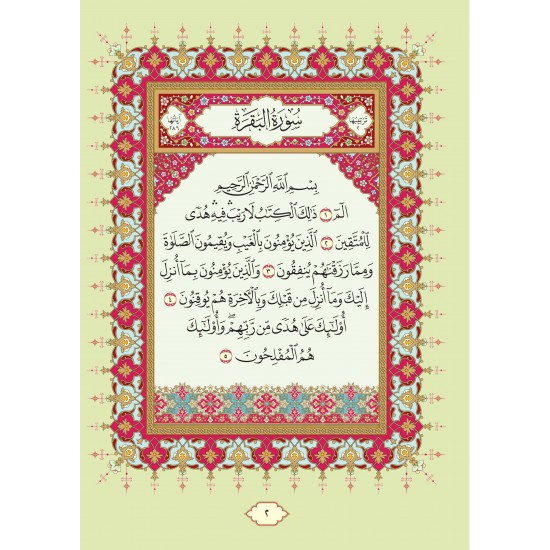 ترتيبها ٢
سُورَةُ البَقَرَةِ
آياتها ٢٨٦
بِسْمِ اللَّهِ الرَّحْمَٰنِ الرَّحِيمِ
الٓمٓ ١ ذَٰلِكَ الْكِتَٰبُ لَا رَيْبَ ۛ فِيهِ ۛ هُدًى
لِّلْمُتَّقِينَ ٢ الَّذِينَ يُؤْمِنُونَ بِالْغَيْبِ وَيُقِيمُونَ الصَّلَوٰةَ
وَمِمَّا رَزَقْنَٰهُمْ يُنفِقُونَ ٣ وَالَّذِينَ يُؤْمِنُونَ بِمَا أُنزِلَ
إِلَيْكَ وَمَا أُنزِلَ مِن قَبْلِكَ وَبِالْآخِرَةِ هُمْ يُوقِنُونَ ٤
أُولَٰئِكَ عَلَىٰ هُدًى مِّن رَّبِّهِمْ ۖ وَأُولَٰئِكَ
هُمُ الْمُفْلِحُونَ ٥
٢